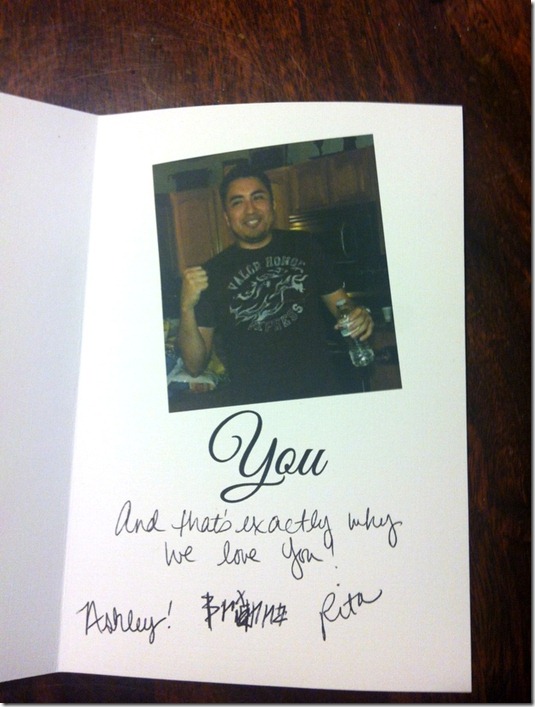 VALLE HONOR
EXPRESS
You
And that's exactly why
we love you!
Ashley!
Rita